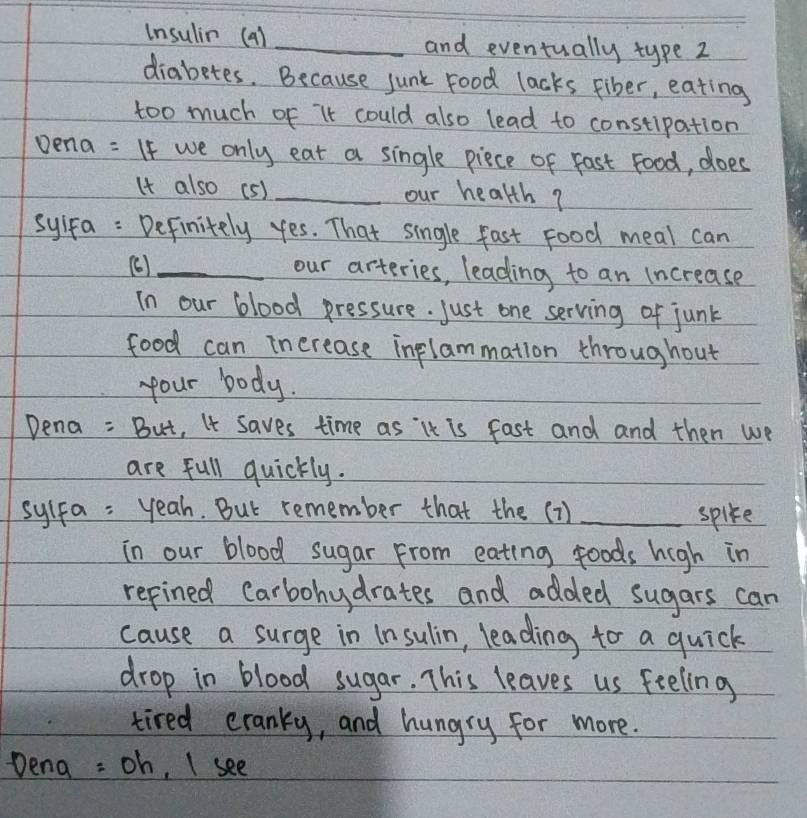 Insulin (4) ________ and eventually type 2
diabetes. Because junk food lacks fiber, eating
too much of it could also lead to constipation
Dena = If we only eat a single piece of fast food, does
it also (5) ________ our health ?
Syifa = Definitely yes. That single fast food meal can
(6) ________ our arteries, leading to an increase
in our blood pressure. Just one serving of junk
food can increase inflammation throughout
your body.
Dena = But, it saves time as it is fast and and then we
are full quickly.
Syifa = Yeah. But remember that the (7) ________ spike
in our blood sugar from eating foods high in
refined carbohydrates and added sugars can
cause a surge in insulin, leading to a quick
drop in blood sugar. This leaves us feeling
tired cranky, and hungry for more.
Dena = Oh, I see